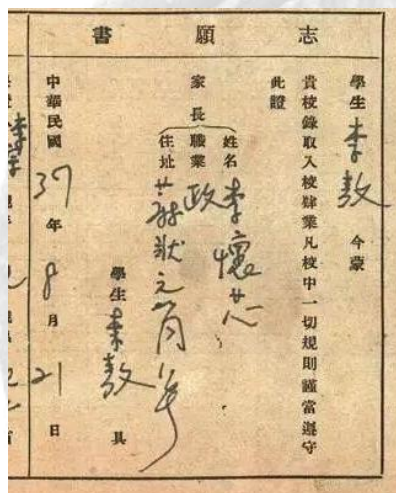 志願書
學生 李敖 今蒙
貴校錄取入校肄業凡校中一切規則謹當遵守
此證
家長
姓名 李懷
職業 政
住址 蘇狀元
學生 李敖 具
中華民國 37 年 8 月 21 日